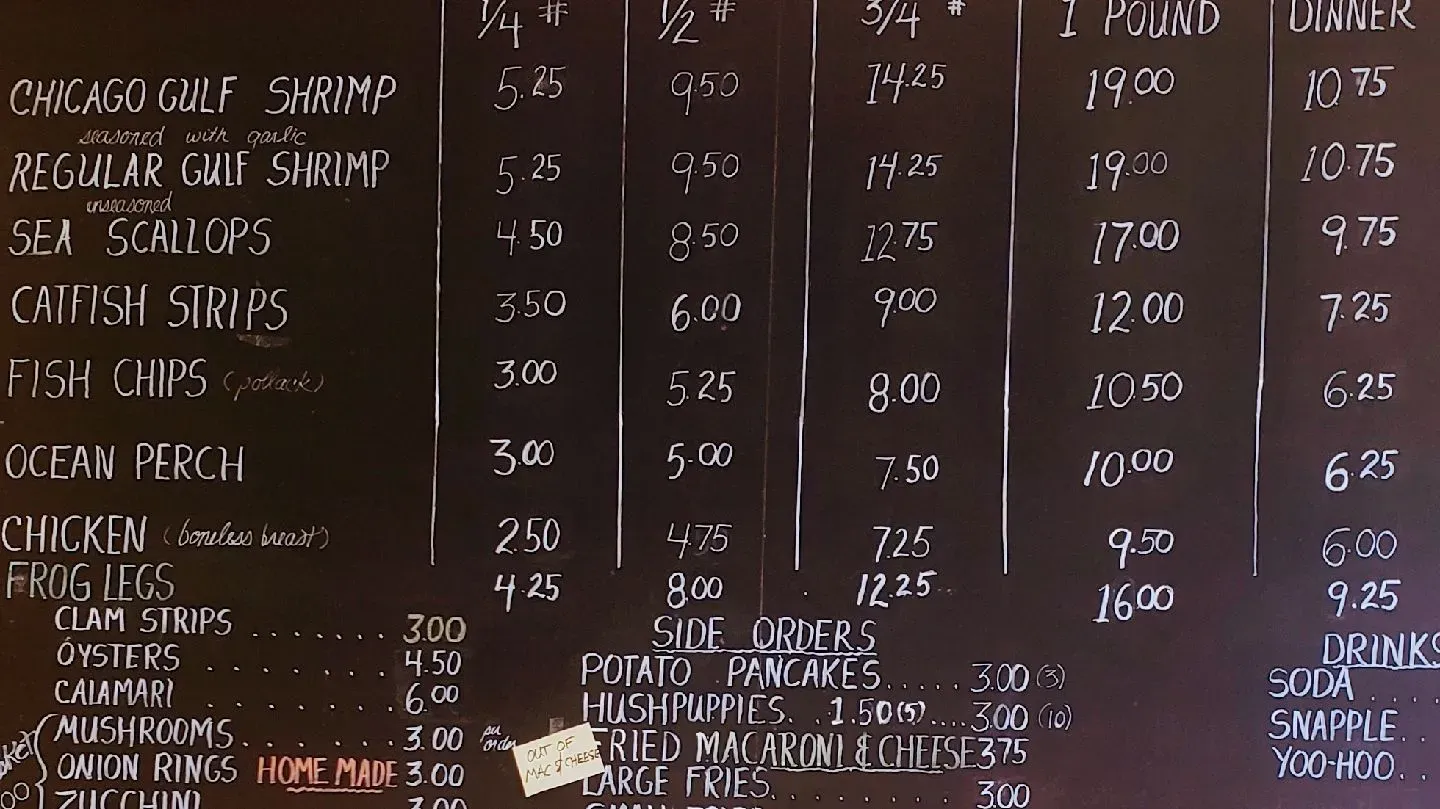 1/4 # 1/2 # 3/4 # 1 POUND DINNER
CHICAGO GULF SHRIMP 5.25 9.50 14.25 19.00 10.75
seasoned with garlic
REGULAR GULF SHRIMP 5.25 9.50 14.25 19.00 10.75
unseasoned
SEA SCALLOPS 4.50 8.50 12.75 17.00 9.75
CATFISH STRIPS 3.50 6.00 9.00 12.00 7.25
FISH CHIPS (pollack) 3.00 5.25 8.00 10.50 6.25
OCEAN PERCH 3.00 5.00 7.50 10.00 6.25
CHICKEN (boneless breast) 2.50 4.75 7.25 9.50 6.00
FROG LEGS 4.25 8.00 12.25 16.00 9.25
CLAM STRIPS ....... 3.00
OYSTERS ........ 4.50
CALAMARI ........ 6.00
MUSHROOMS........ 3.00 per order
ONION RINGS HOME MADE 3.00
ZUCCHINI 3.00
OUT OF
MAC & CHEESE
SIDE ORDERS
POTATO PANCAKES..... 3.00 (3)
HUSHPUPPIES. .1.50(5).... 3.00 (10)
FRIED MACARONI & CHEESE 375
LARGE FRIES........ 3.00
DRINKS
SODA ...
SNAPPLE..
YOO-HOO..